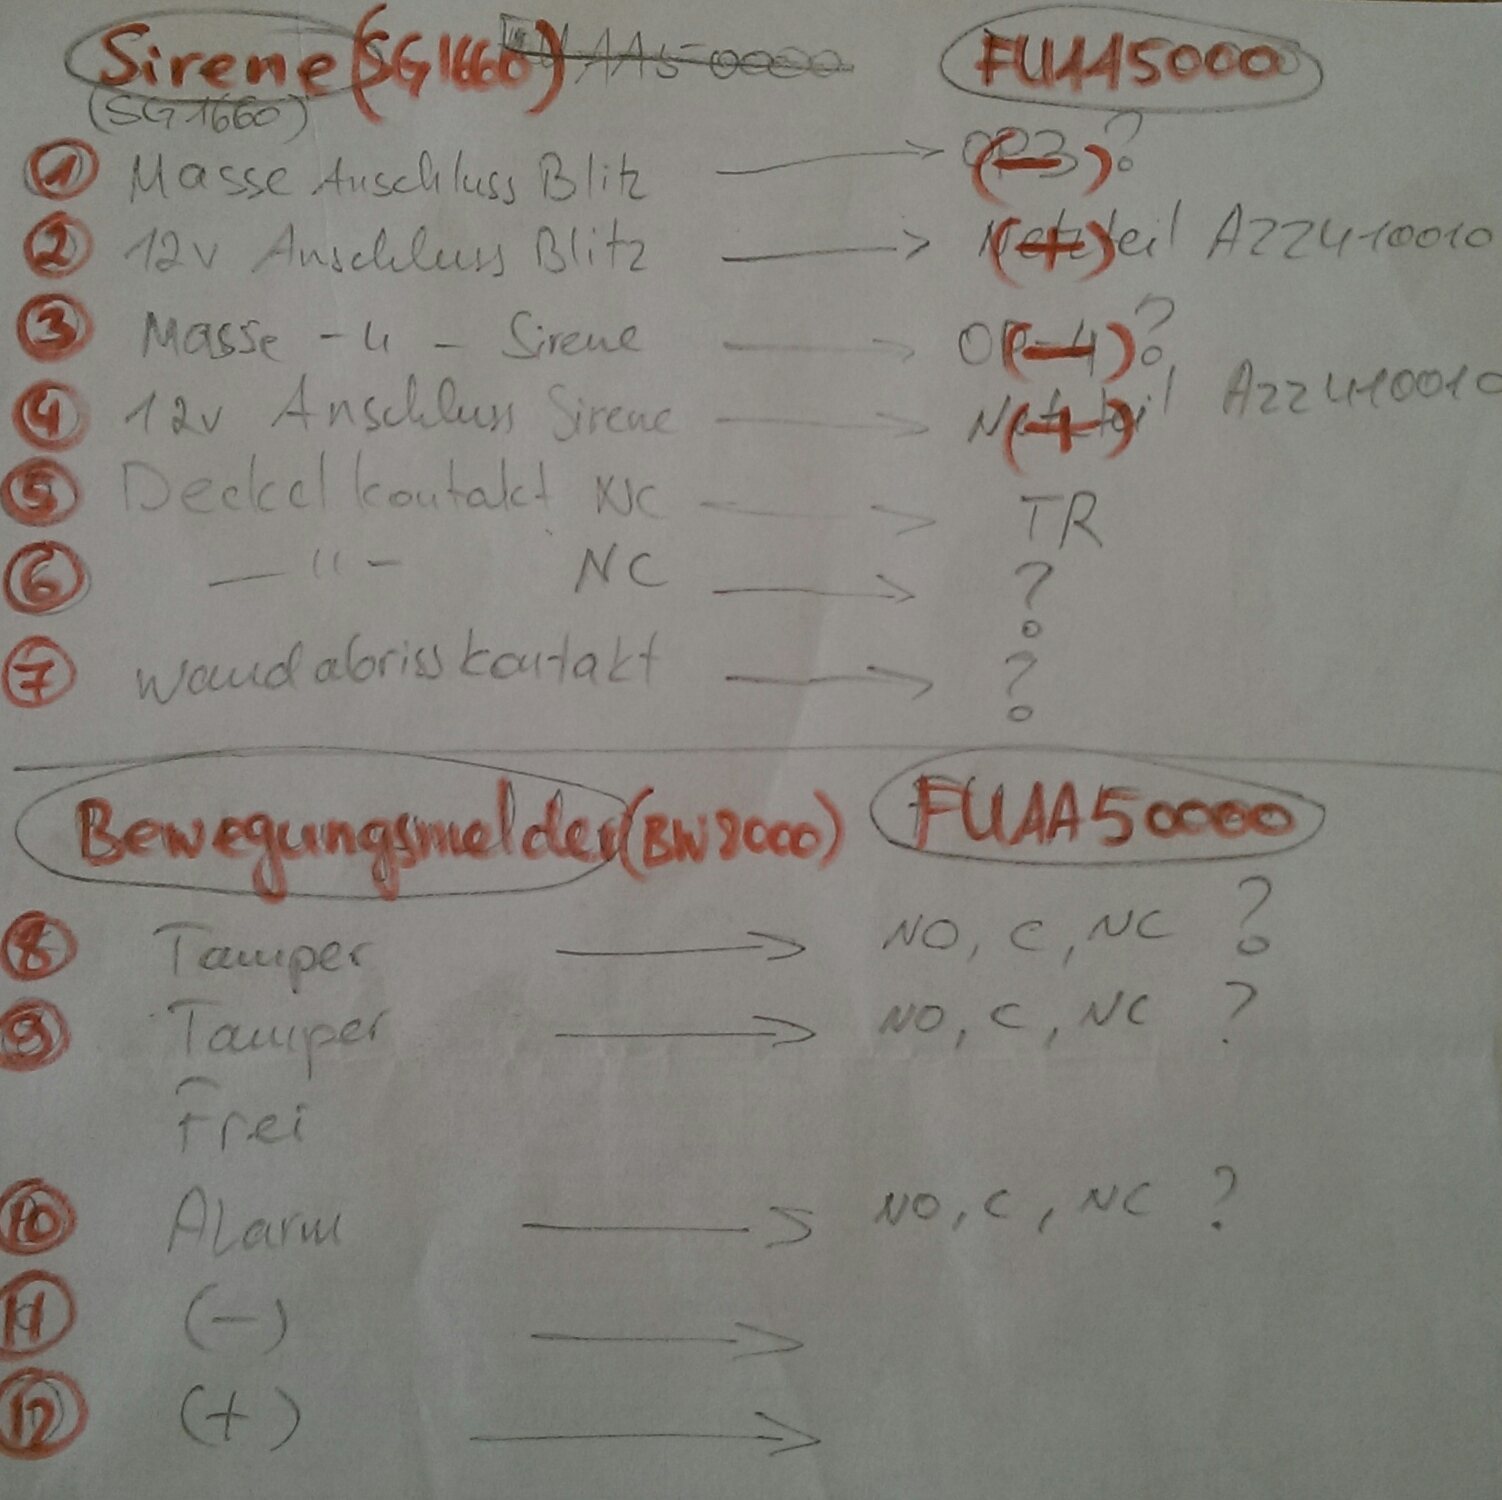 Sirene (SG1660) FUAA50000
(SG1660)
1 Masse Anschluss Blitz → (-) ?
2 12v Anschluss Blitz → Netzteil (+) AZZ410010
3 Masse -"- Sirene → OP4 (-) ?
4 12v Anschluss Sirene → Netzteil (+) AZZ410010
5 Deckelkontakt NC → TR
6 -"- NC → ?
7 Wandabrisskontakt → ?
Bewegungsmelder (BW8000) FUAA50000
8 Tamper → NO, C, NC ?
9 Tamper → NO, C, NC ?
Frei
10 Alarm → NO, C, NC ?
11 (-) →
12 (+) →